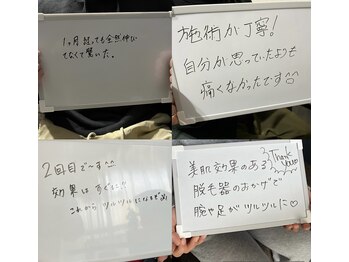 1ヶ月経っても全然伸び
てなくて驚いた。
施術が丁寧!
自分が思っていたよりも
痛くなかったです^^
2回目で〜す^^
効果はすぐに!!
これからツルツルになるぜぃ
美肌効果のある
Thank you
脱毛器のおかげで
腕や足がツルツルに♡